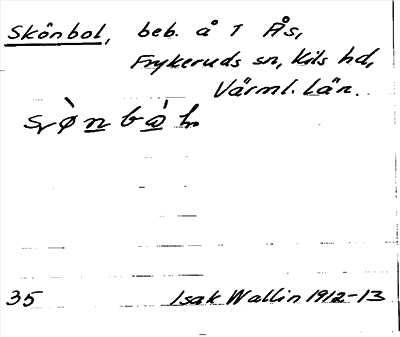 Skönbol, beb. å 1 Ås,
Frykeruds sn, Kils hd,
Värml. Län.
35 Isak Wallin 1912-13